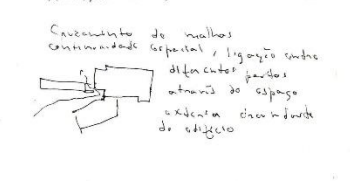 Cruzamento de malhas
continuidade espacial, ligação entre
diferentes partes
através do espaço
exterior circundante
do edifício